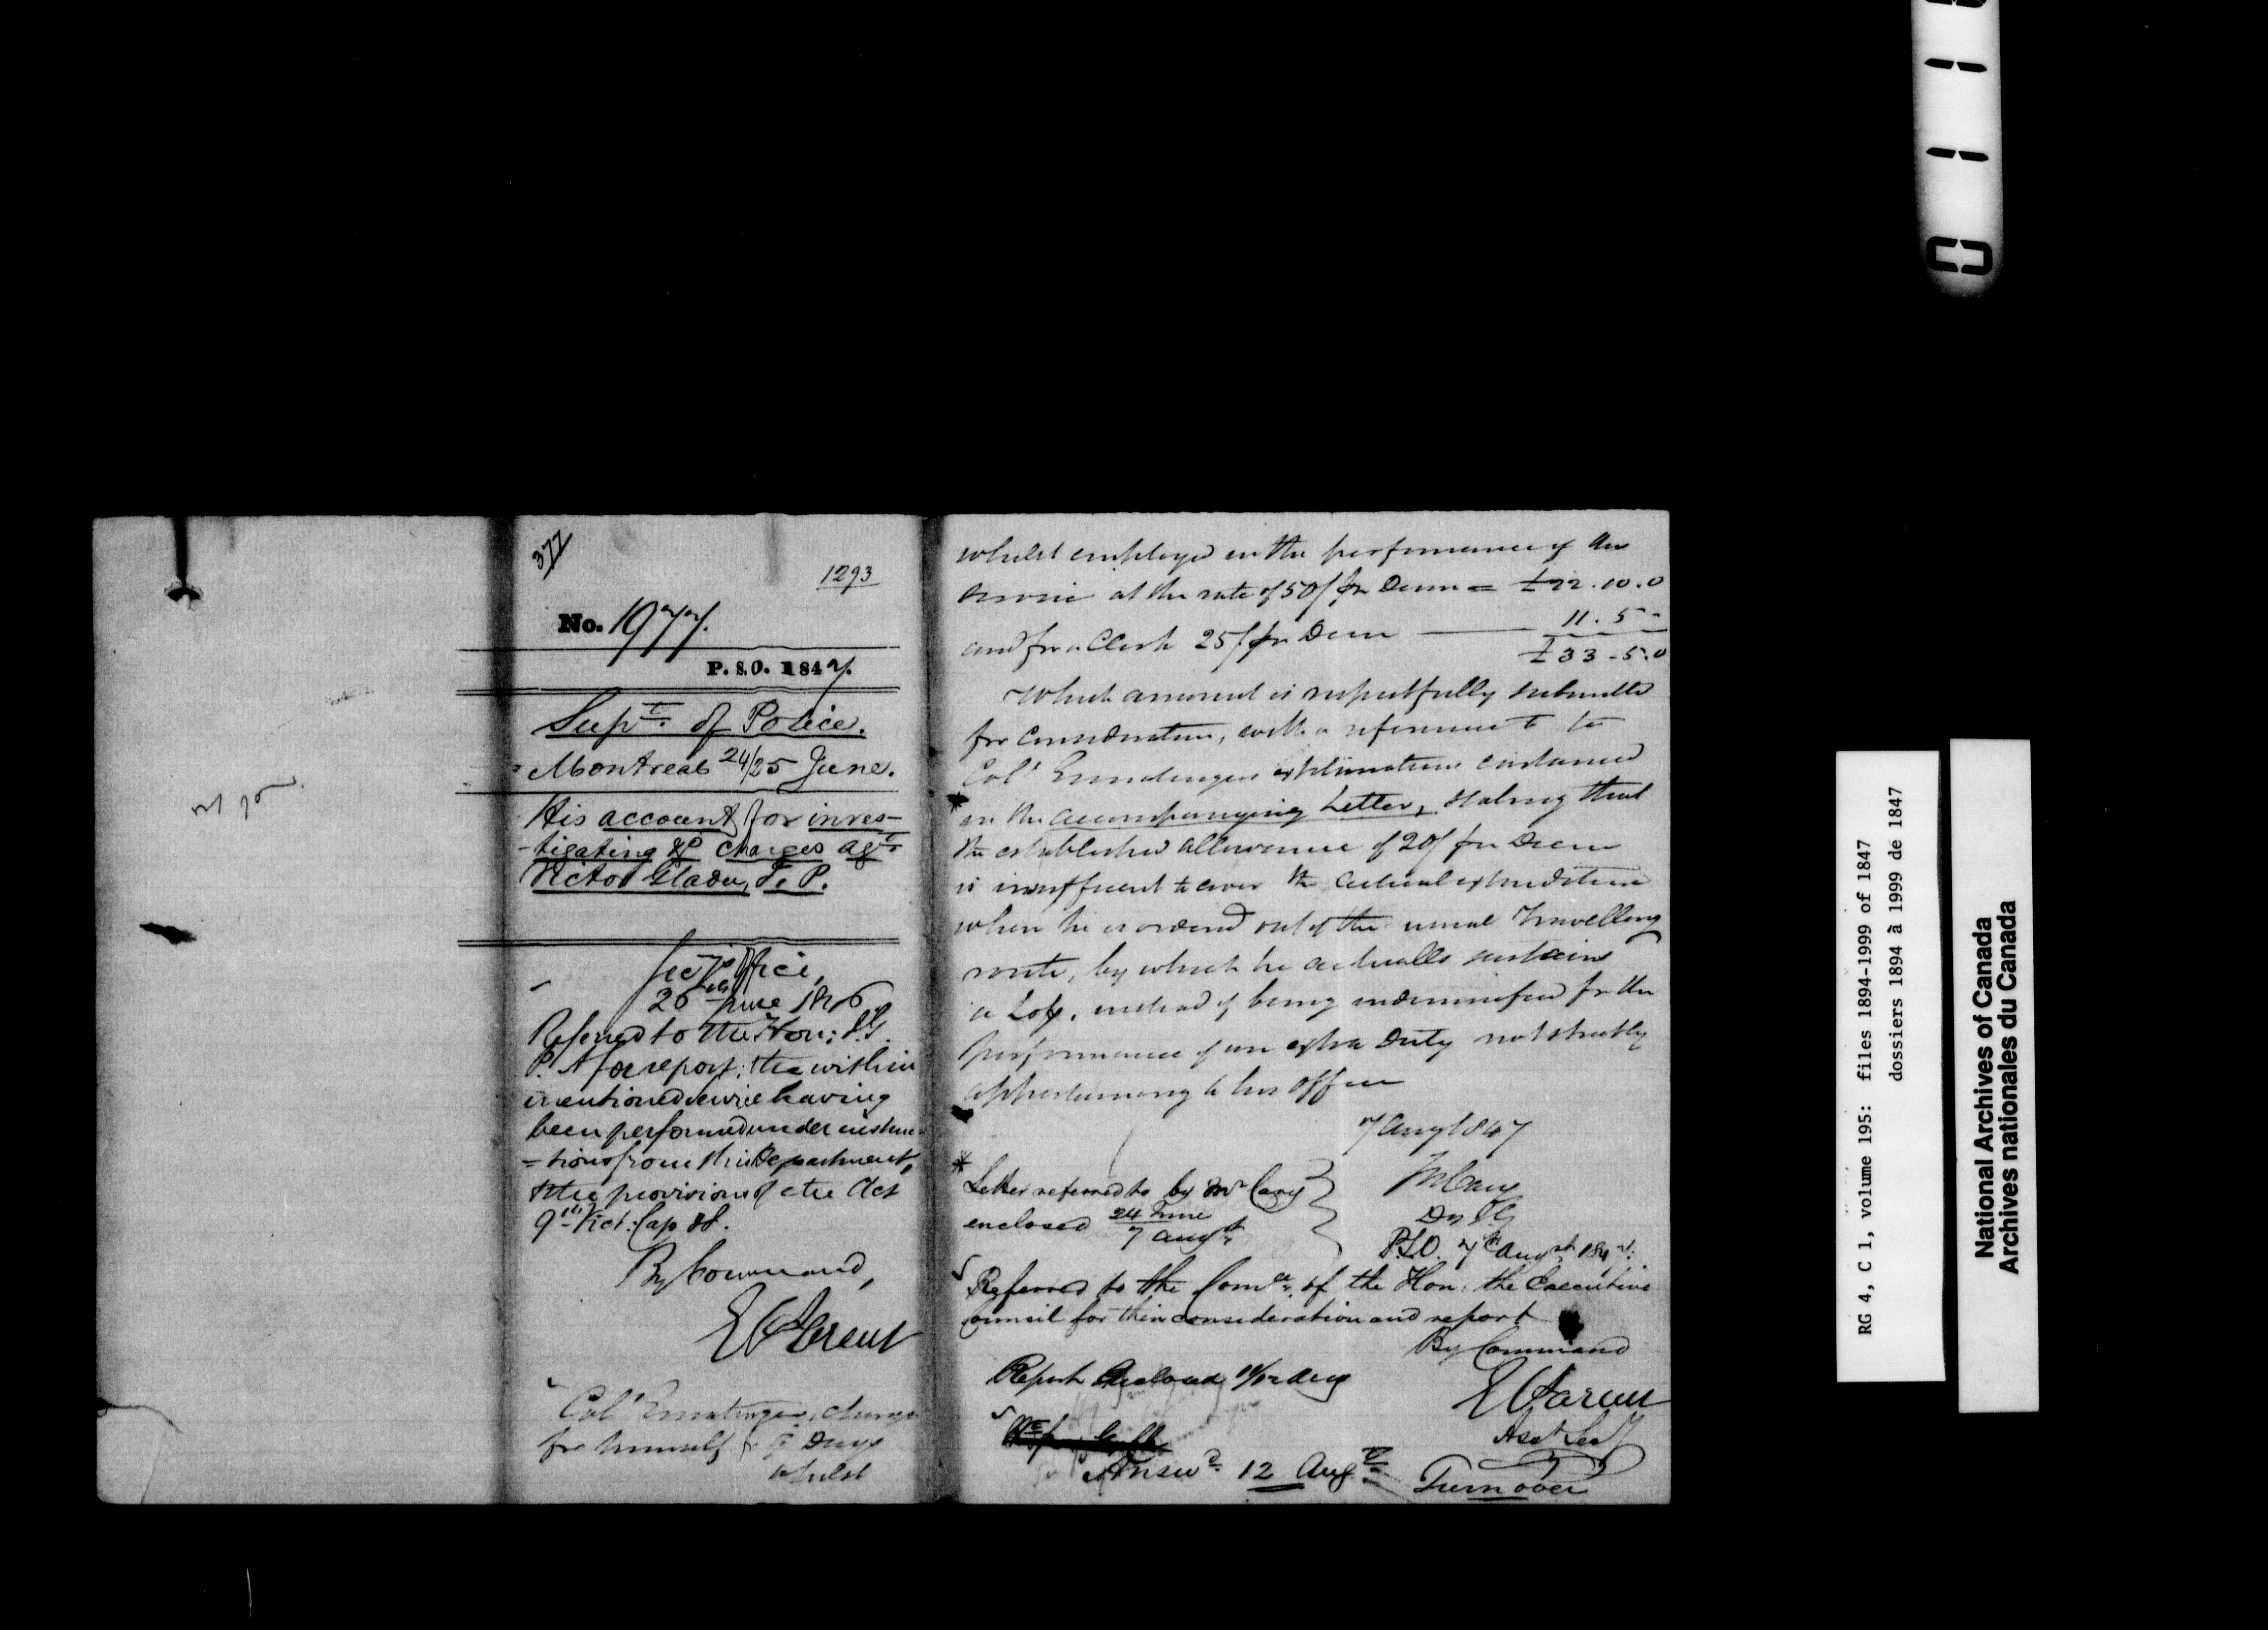 377
1293
No. 1977.
P.S.O. 1847.
Supt. of Police.
Montreal 24/25 June.
His account for inves-
-tigating &c charges agt.
Victor Gladu, J. P.
Secy's Office,
26 June 1846
Referred to the Hon: I.G.
P. A for report; the within
mentioned service having
been performed under instruc-
-tions from this Department,
& the provisions of the Act
9th Vict: Cap 38.
By Command,
E Parent
Col Ermatinger, charges
for himself for 9 Days
whilst
whilst employed in the performance of this
service at the rate of 50/ pr Diem = £22.10.0
and for a Clerk 25/ pr Diem 11.5 -
£33-5.0
Which amount is respectfully submitted
for consideration, with a reference to
Col Ermatingers explanations contained
* in the accompanying Letter, stating that
the established allowance of 20/ per Diem
is insufficient to cover the actual expenditure
when he is ordered out of the usual Travelling
route, by which he actually sustains
a Loss, instead of being indemnified for the
performance of an extra Duty not strictly
appertaining to his office
7 Aug 1847
* Letter referred to by Mr Cary
enclosed 24 June
7 Augt
J Cary
Dy I G
P.S.O. 7th Augst 1847.
Referred to the Comee. of the Hon: the Executive
Council for their consideration and report
By Command
E Parent
Asst Secy
Report enclosed Aug
Answd. 12 Augt
Turn over
RG 4, C 1, volume 195: files 1894-1999 of 1847
dossiers 1894 à 1999 de 1847
National Archives of Canada
Archives nationales du Canada